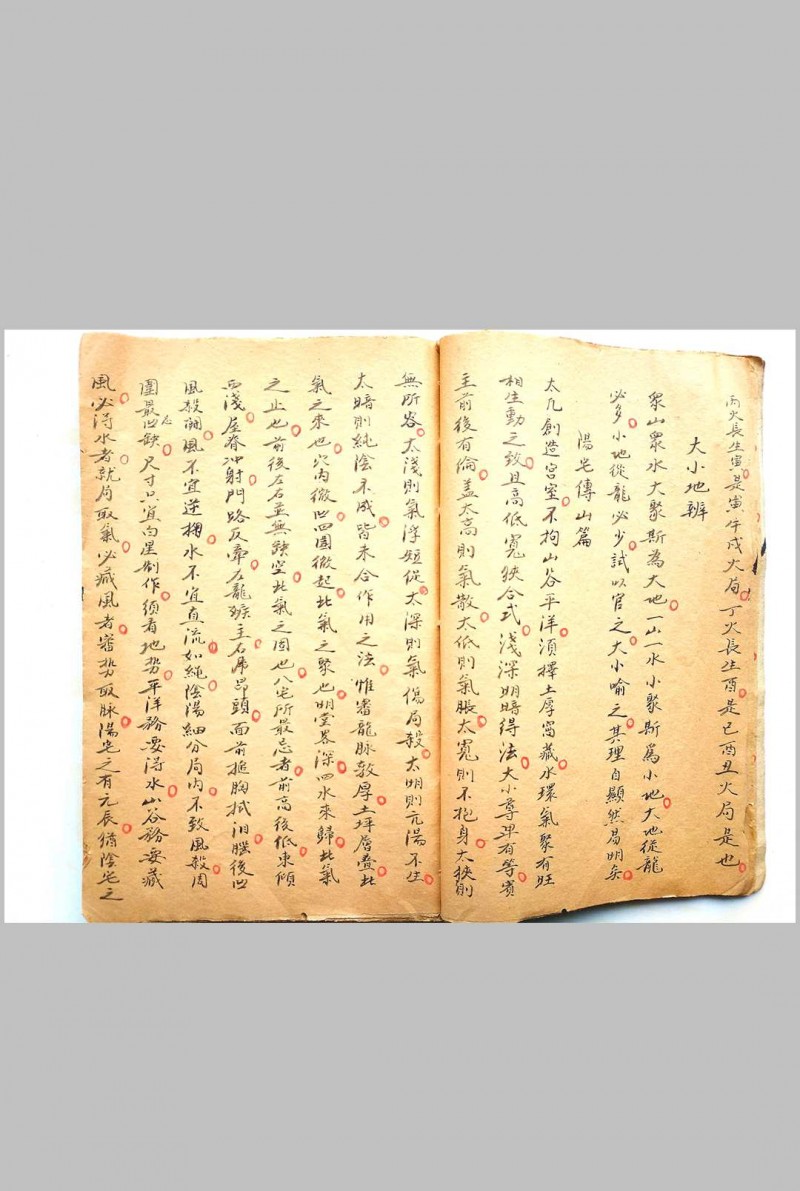 丙火長生寅是寅午戌火局丁火長生酉是巳酉丑火局是也
大小地辨
衆山衆水大聚斯為大地一山一水小聚斯為小地大地從龍
必多小地從龍必少試以官之大小喻之其理自顯然易明矣
陽宅傳山篇
太凡創造宮室不拘山谷平洋須擇土厚窩藏水環氣聚有旺
相生動之致且高低寬狹合式淺深明暗得法大小尊卑有等賓
主前後有倫盖太高則氣散太低則氣脹太寬則不抱身太狹則
無所容太淺則氣浮短從太深則氣傷局殺太明則亢陽不生
太暗則純陰不成皆未合作用之法惟審龍脉敦厚土坪層疊此
氣之來也穴内微凹四圍微起此氣之聚也明堂畧深四水來歸此氣
之止也前後左右並無缺空此氣之固也八宅所最忌者前高後低東傾
西淺屋脊冲射門路反弔左龍主右虎昂頭面前搥胸拭泪騰後凹
風殺謝風不宜逆掬水不宜直流如繩陰陽細分局内不致風殺周
圍最忌凹缺尺寸只宜向星制作須看地勢平洋務要得水山谷務要藏
風必得水者就局取氣必藏風者審勢取脉陽宅之有元長猶陰宅之